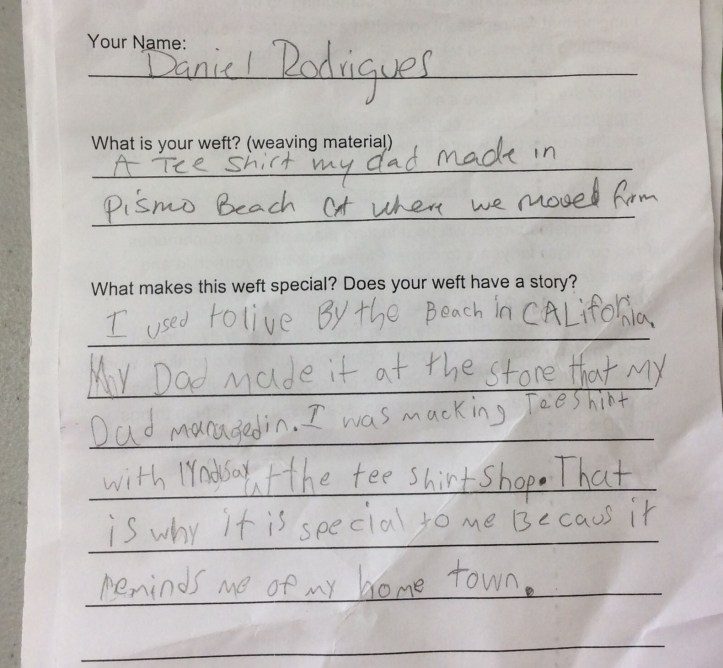 Your Name:
Daniel Rodrigues
What is your weft? (weaving material)
A Tee Shirt my dad made in
Pismo Beach CA where we moved from
What makes this weft special? Does your weft have a story?
I used to live By the Beach in CALifornia.
My Dad made it at the store that my
Dad managed in. I was macking Tee Shirt
with lyndsay at the tee shirt Shop. That
is why it is special to me Becaus it
reminds me of my home town.